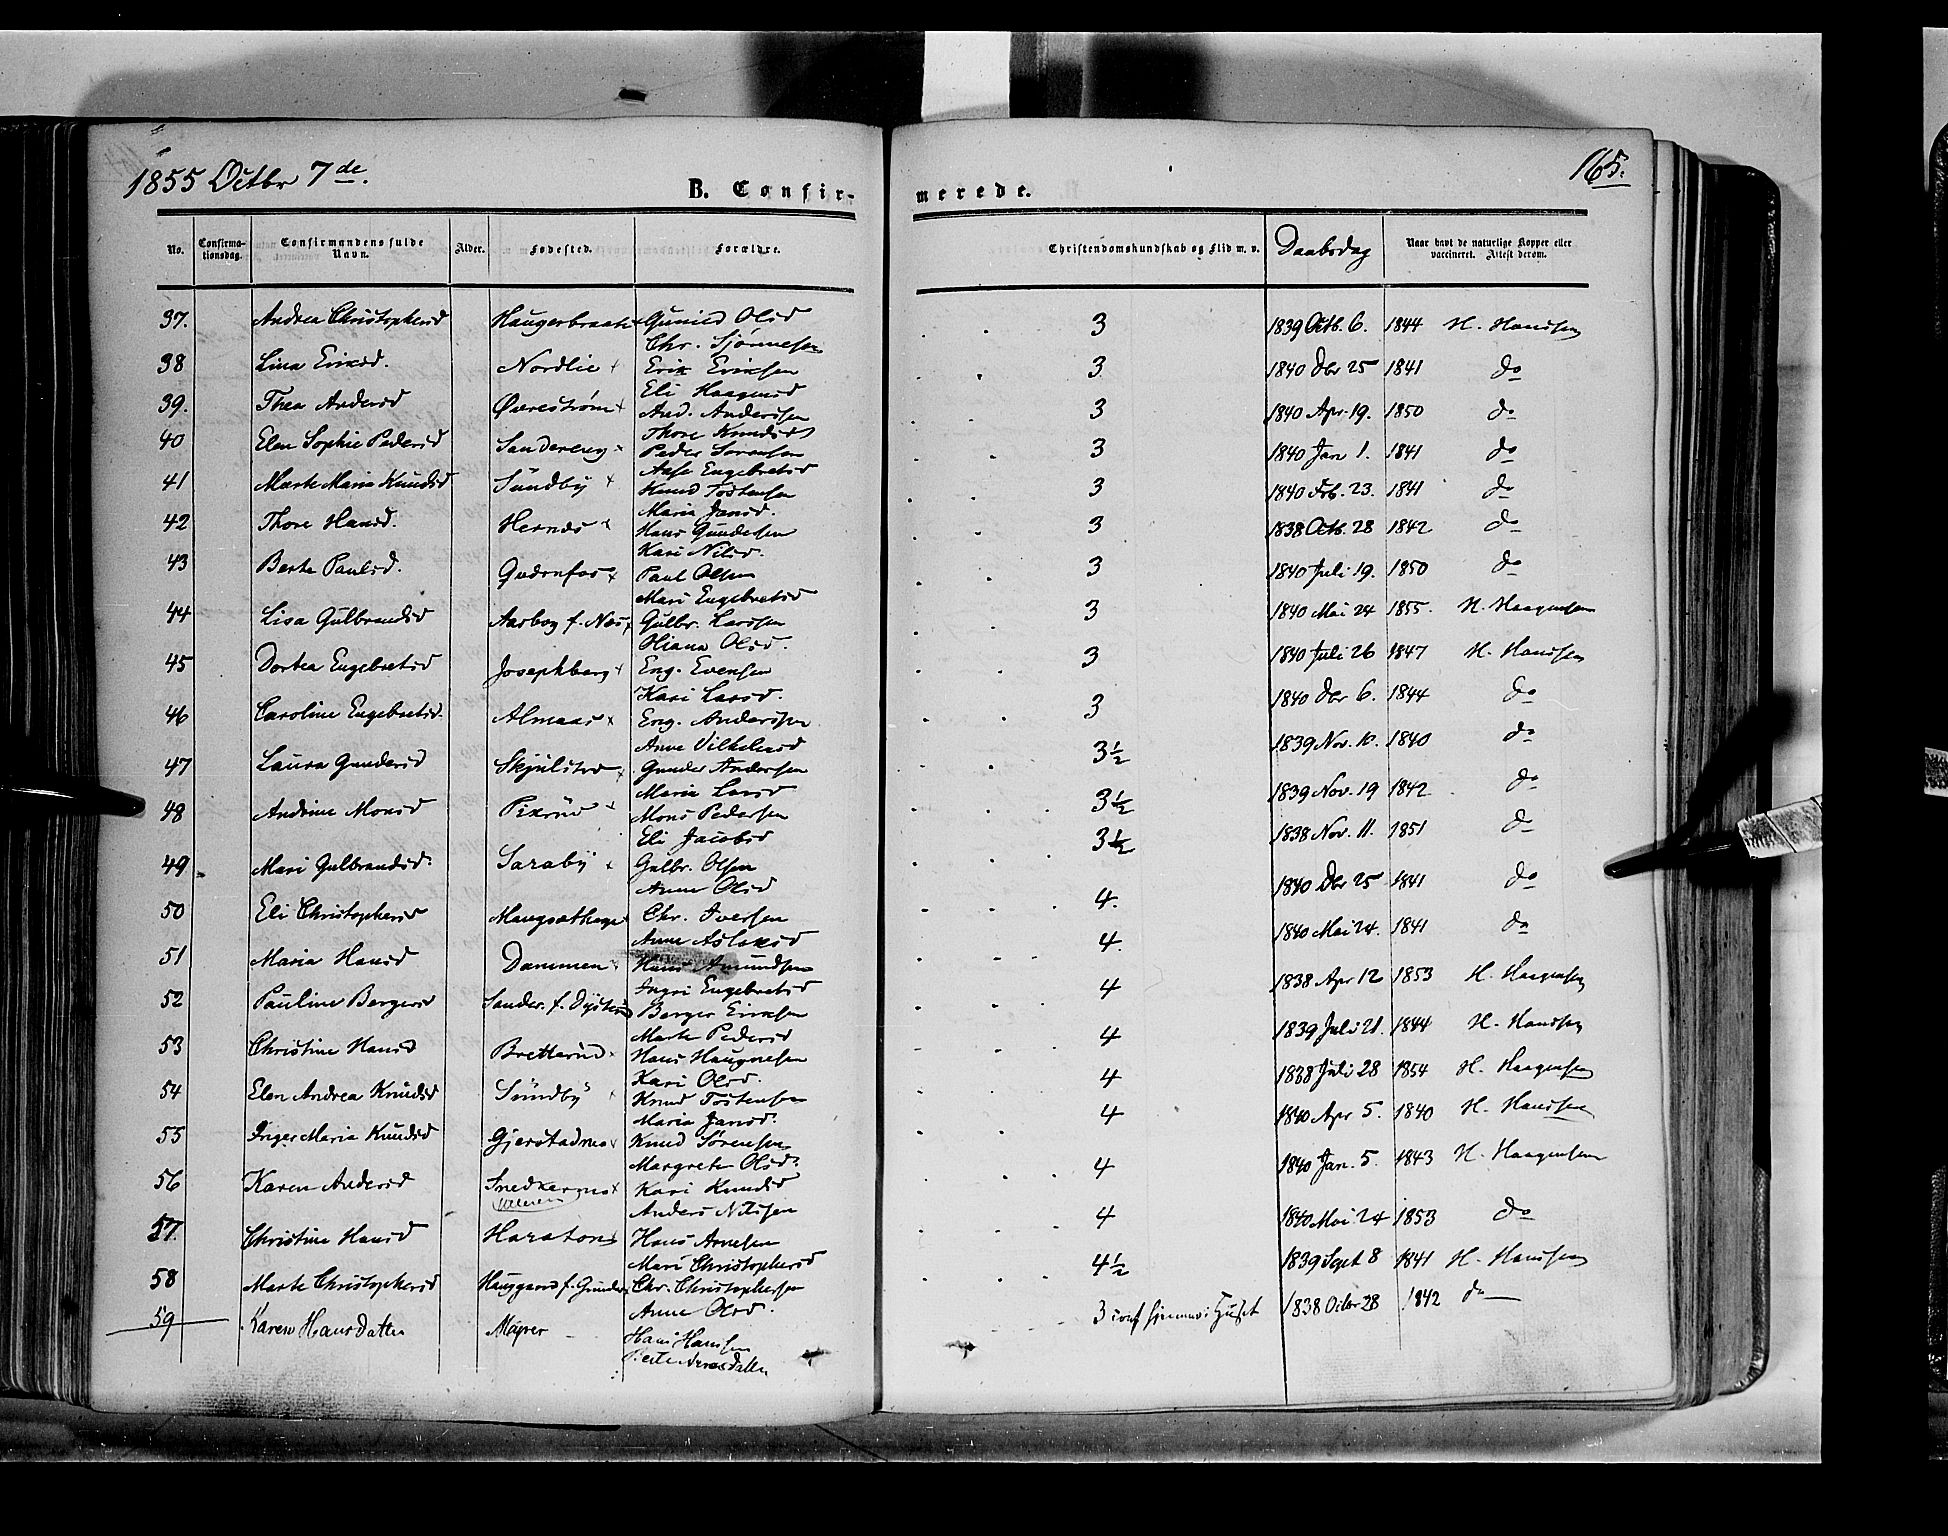 1855 Octbr 7de.
165.
B. Confir-
merede.
No. Confirma-tionsdag. Confirmandens fulde Navn. Alder. Fødested. Forældre. Christendomskundskab og Flid m. v. Daabsdag Naar havt de naturlige Kopper eller vaccineret. Attest derom.
37. Andrea Christophersd Haugerbraaten Gunild Olsd 3 1839 Octb. 6. 1844 H. Hanssen
Chr.
38 Lina Eriksd. Nordlie Erik Eriksen 3 1840 Dbr 25 1841 do
Eli Haagensd
39. Thea Andersd Øvrestrøm And. Anderssen 3 1840 Apr. 19. 1850 do
Thore Knudsd
40 Elen Sophie Pedersd Sandereng Peder Sørensen 3 1840 Jan 1. 1841 do
Aase Engebretsd
41 Marte Maria Knudsd Sundby Knud Tostensen 3 1840 Feb. 23. 1841 do
Maria Jansd.
42 Thore Hansd. Hernæs Hans Gundersen 3 1838 Octb. 28 1842 do
Kari Nilsd.
43 Berte Paulsd. Paul Olsen 3 1840 Juli 19. 1850 do
Mari Engebretsd
44 Lisa Gulbrandsd f. Næs Gulbr. Larssen 3 1840 Mai 24 1855. H. Haagensen
Olsd.
45 Dortea Engebretsd Josephberg Eng. Evensen 3 1840 Juli 26 1847 H. Hanssen
Kari Larsd.
46 Caroline Engebretsd. Almaas Eng. Anderssen 3 1840 Dbr 6. 1844 do
Anne Vilhelmsd
47 Laura Gundersd Skjulstad Gunder Andersen 3½ 1839 Nov. 10. 1840 do
Maria Larsd
48 Andrine Monsd Pixrud Mons Pedersen 3½ 1839 Nov. 19 1842 do
Eli Jacobsd
49 Mari Gulbrandsd. Saraby Gulbr. Olsen 3½ 1838 Nov. 11. 1851 do
Anne Olsd
50 Eli Christophersd Mangsæthage Chr. Iversen 4. 1840 Dbr 25 1841 do
Anne Aslaksd
51 Maria Hansd Dammen Hans Amundsen 4. 1840 Mai 24. 1841 do
Ingri Engebretsd
52 Pauline Bergersd Sander. f. Berger Eriksen 4 1838 Apr 12 1853 H. Haagensen
Marte Pedersd
53 Christine Hansd Bretterud Hans Haagensen 4 1839 Juli 21. 1844 H. Hanssen
Kari Olsd.
54 Elen Andrea Knudsd Sundby Knud Tostensen 4 1838 Juli 28 1854 H. Haagensen
Maria Jansd.
55 Inger Maria Knudsd Gjerstadnæs Knud Sørensen 4 1840 Apr 5. 1840 H. Hanssen
Margrete Olsd.
56 Karen Andersd Snedkernæs Kari Knudsd 4 1840 Jan. 5. 1843 H. Haagensen
Anders Nilssen
57. Christine Hansd Haraton Hans Arnesen 4 1840 Mai 24 1853 do
Mari Christophersd
58 Marte Christophersd Haugaard f. Chr. Christophersen 4½ 1839 Sept 8 1841 H. Hanssen
Anne Olsd.
59 Karen Hansdatter Mayrer Hans Hanssen 3 conf hjemme i Huset 1838 Octbr 28 1842 do
Berte Arnesdatter